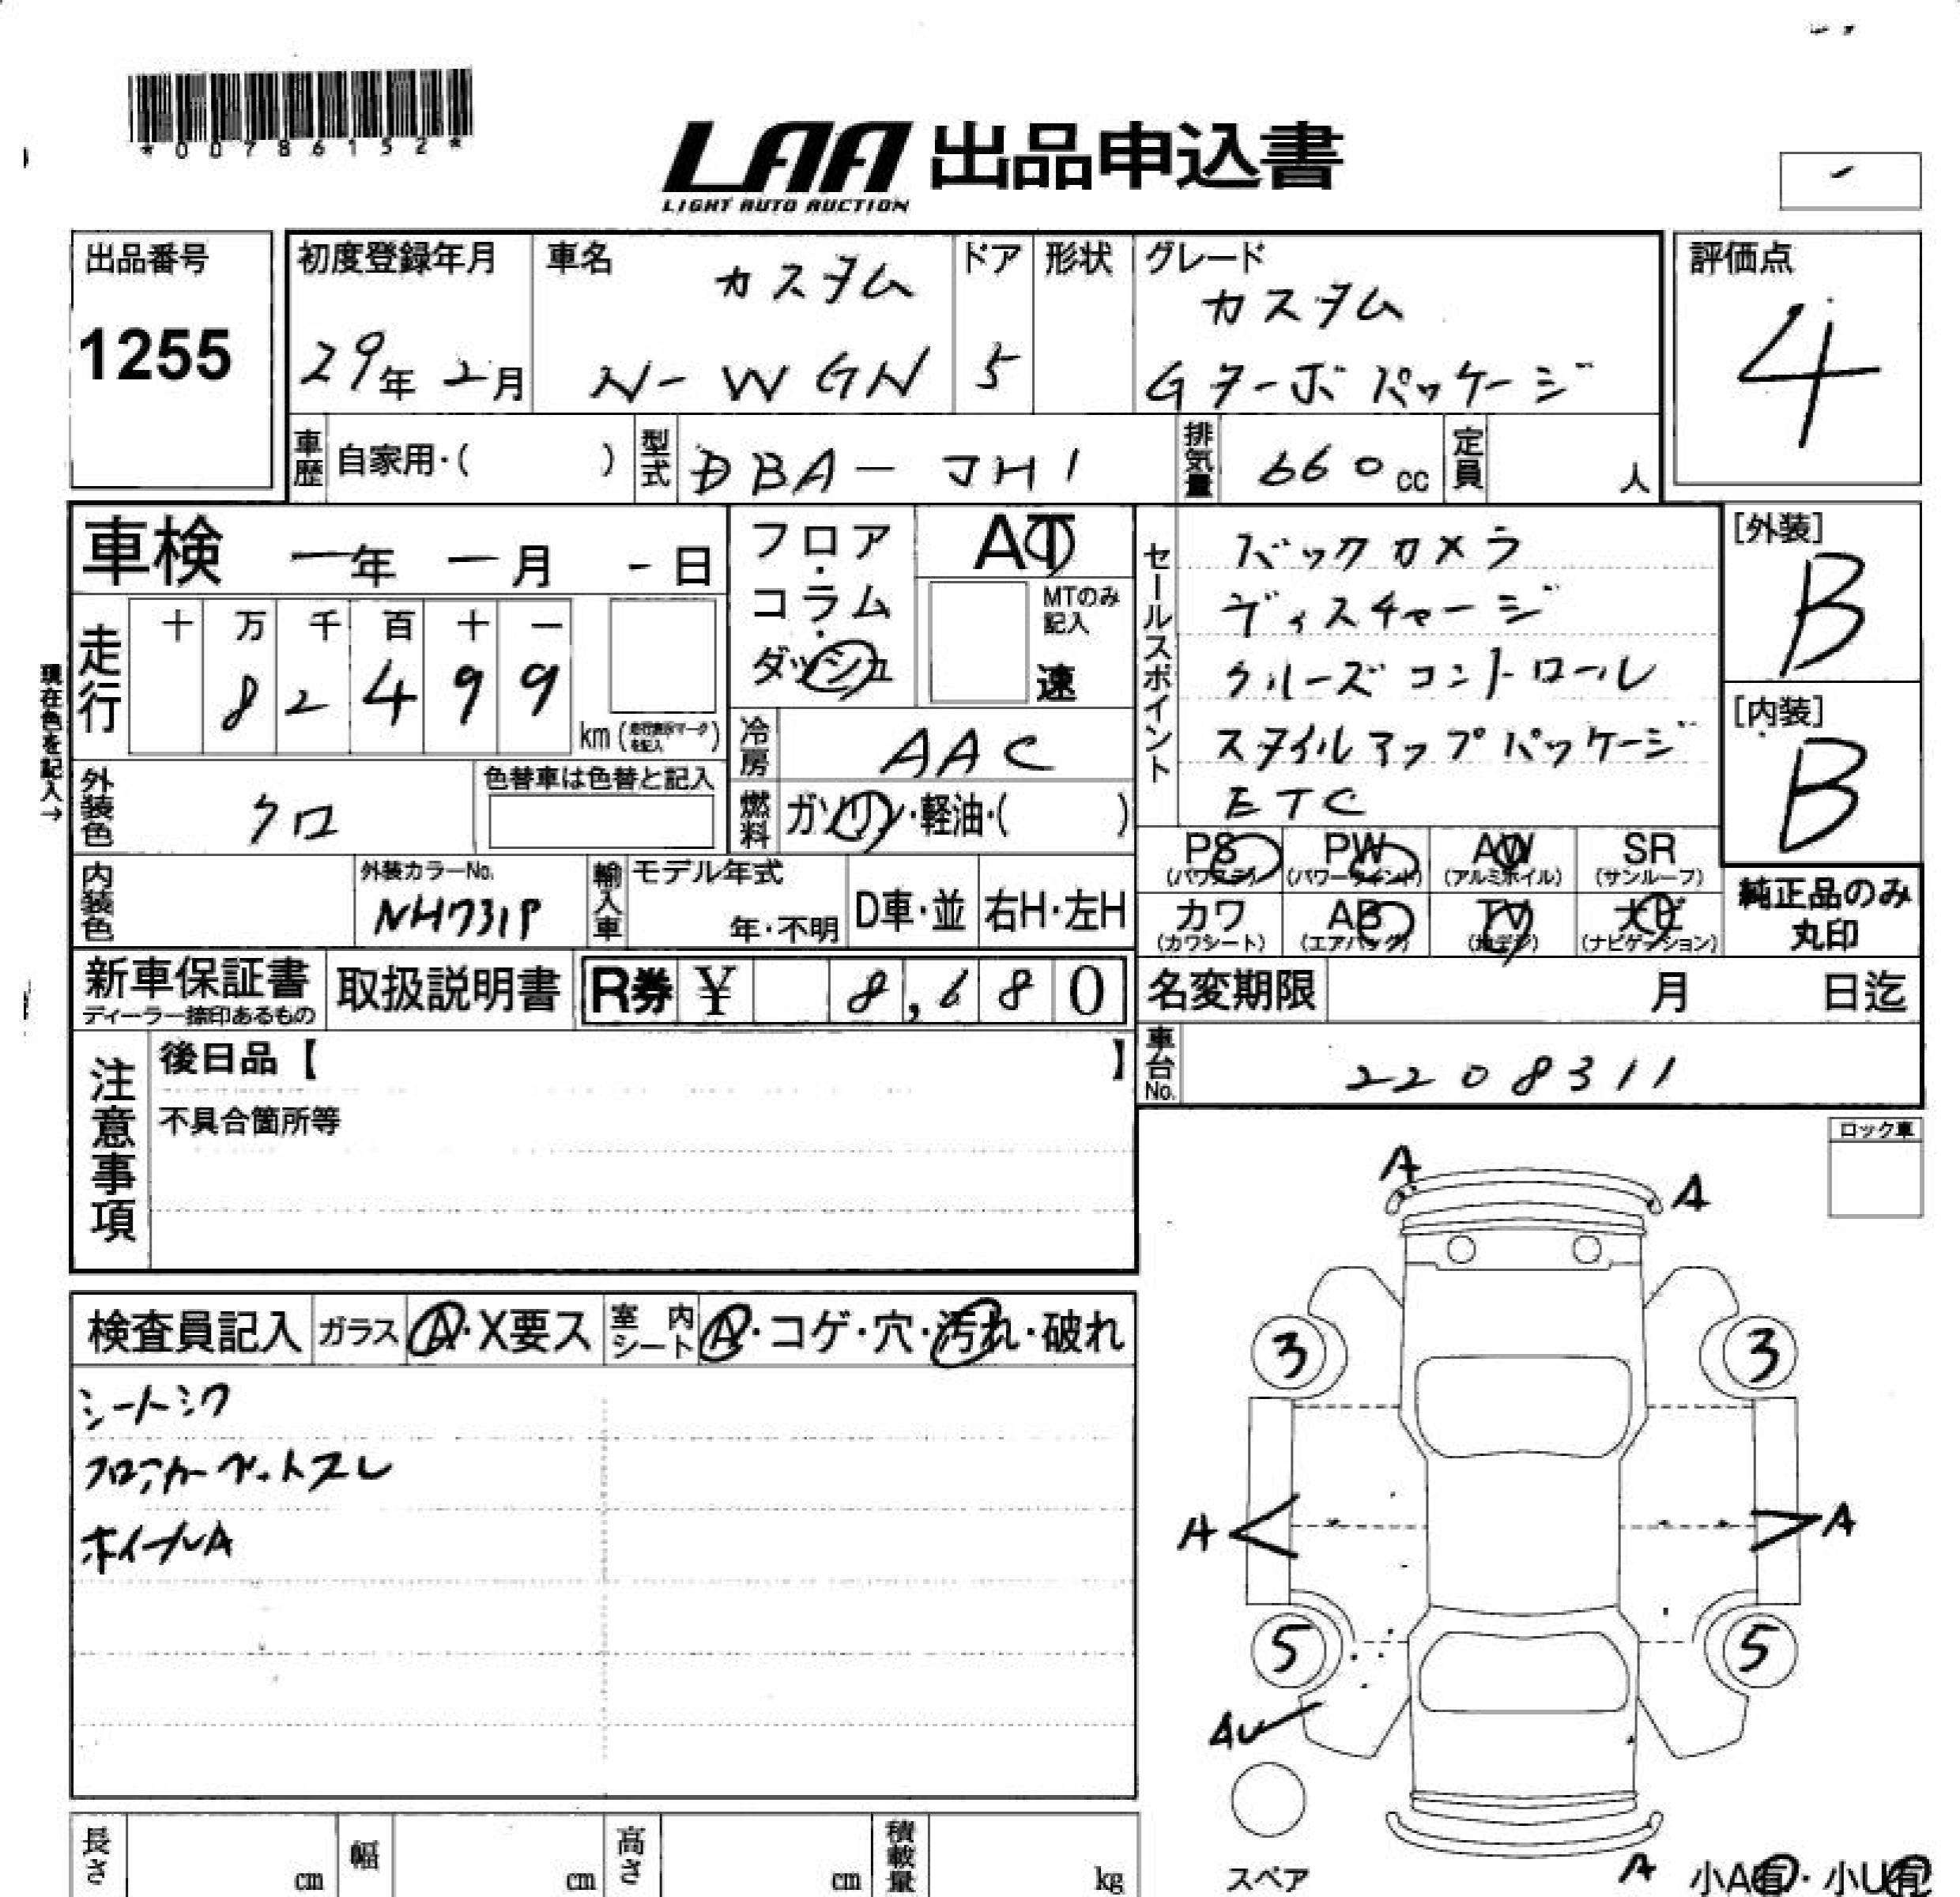 *00786152*
LAA 出品申込書
LIGHT AUTO AUCTION
出品番号
1255
初度登録年月
29年 2月
車名
カスタム
N-WGN
ドア
5
形状
グレード
カスタム
Gターボパッケージ
評価点
4
車歴
自家用・( )
型式
DBA-JH1
排気量
660cc
定員
人
車検
ー年 ー月 -日
現在色を記入→
走行
十 万 千 百 十 一
8 2 4 9 9
km
外装色
クロ
色替車は色替と記入
フロア
・
コラム
・
ダッシュ
AT
MTのみ
記入
速
冷房
AAC
燃料
ガソリン・軽油・( )
セールスポイント
バックカメラ
ディスチャージ
クルーズコントロール
スタイルアップパッケージ
ETC
[外装]
B
[内装]
B
PS
(パワステ)
PW
(パワーウインド)
AW
(アルミホイル)
SR
(サンルーフ)
カワ
(カワシート)
AB
(エアバッグ)
TV
(地デジ)
ナビ
(ナビゲーション)
純正品のみ
丸印
内装色
外装カラーNo.
NH731P
輸入車
モデル年式
年・不明
D車・並
右H・左H
新車保証書
ディーラー捺印あるもの
取扱説明書
R券 ¥ 8,680
名変期限
月 日迄
車台No.
2208311
注意事項
後日品【 】
不具合箇所等
ロック車
検査員記入
ガラス
A・X要ス
室内
シート
A・コゲ・穴・汚れ・破れ
シートシワ
フロアカーペットスレ
ホイールA
A
A
3
3
A
A
5
5
AU
スペア
A
小A有・小U有
長さ
cm
幅
cm
高さ
cm
積載量
kg